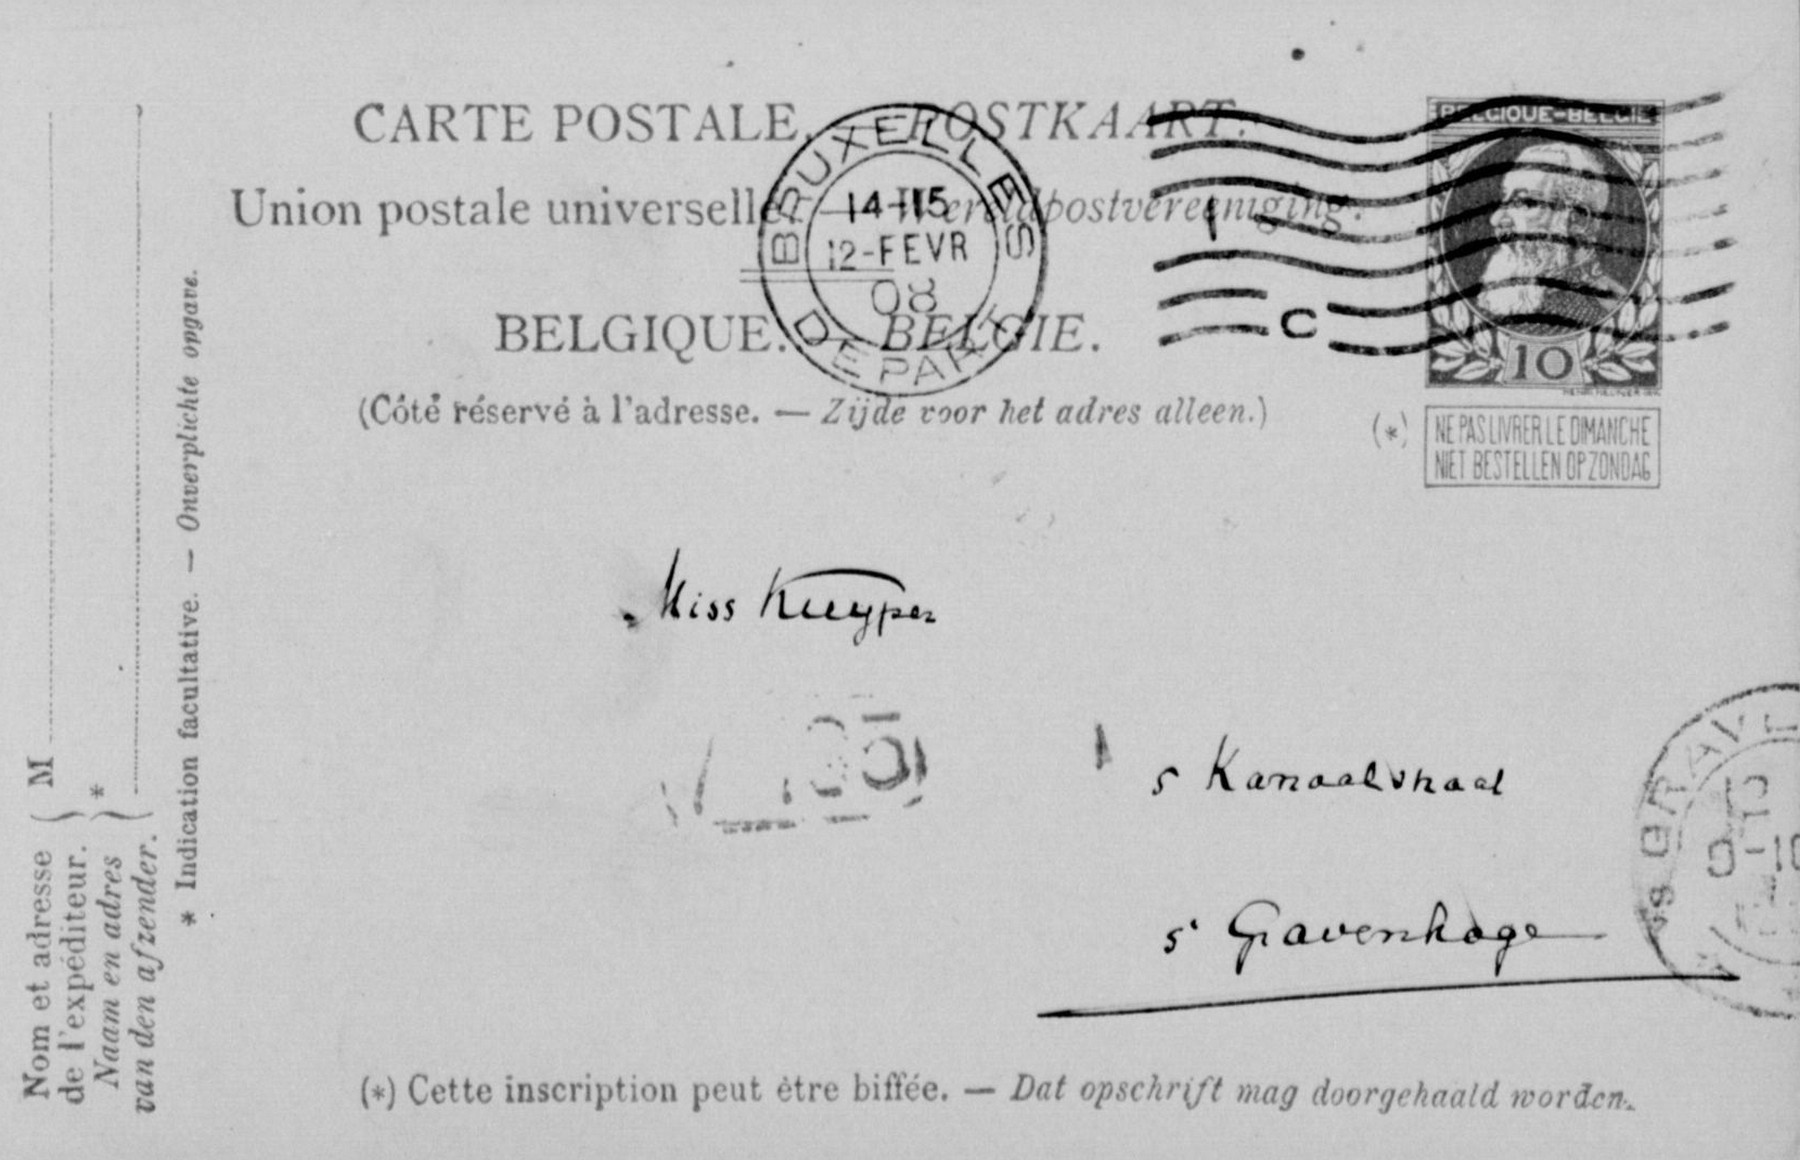 CARTE POSTALE. POSTKAART.
Union postale universelle. — Wereldpostvereeniging.
BRUXELLES
14-15
12-FEVR
08
DEPART
BELGIQUE. BELGIE.
(Côté réservé à l'adresse. — Zijde voor het adres alleen.)
BELGIQUE-BELGIE
C
10
(*)
NE PAS LIVRER LE DIMANCHE
NIET BESTELLEN OP ZONDAG
Miss Kuyper
5 Kanaalstraat
s' Gravenhage
(*) Cette inscription peut être biffée. — Dat opschrift mag doorgehaald worden.
Nom et adresse
de l'expéditeur.
Naam en adres
van den afzender.
M
*
* Indication facultative. — Onverplichte opgave.